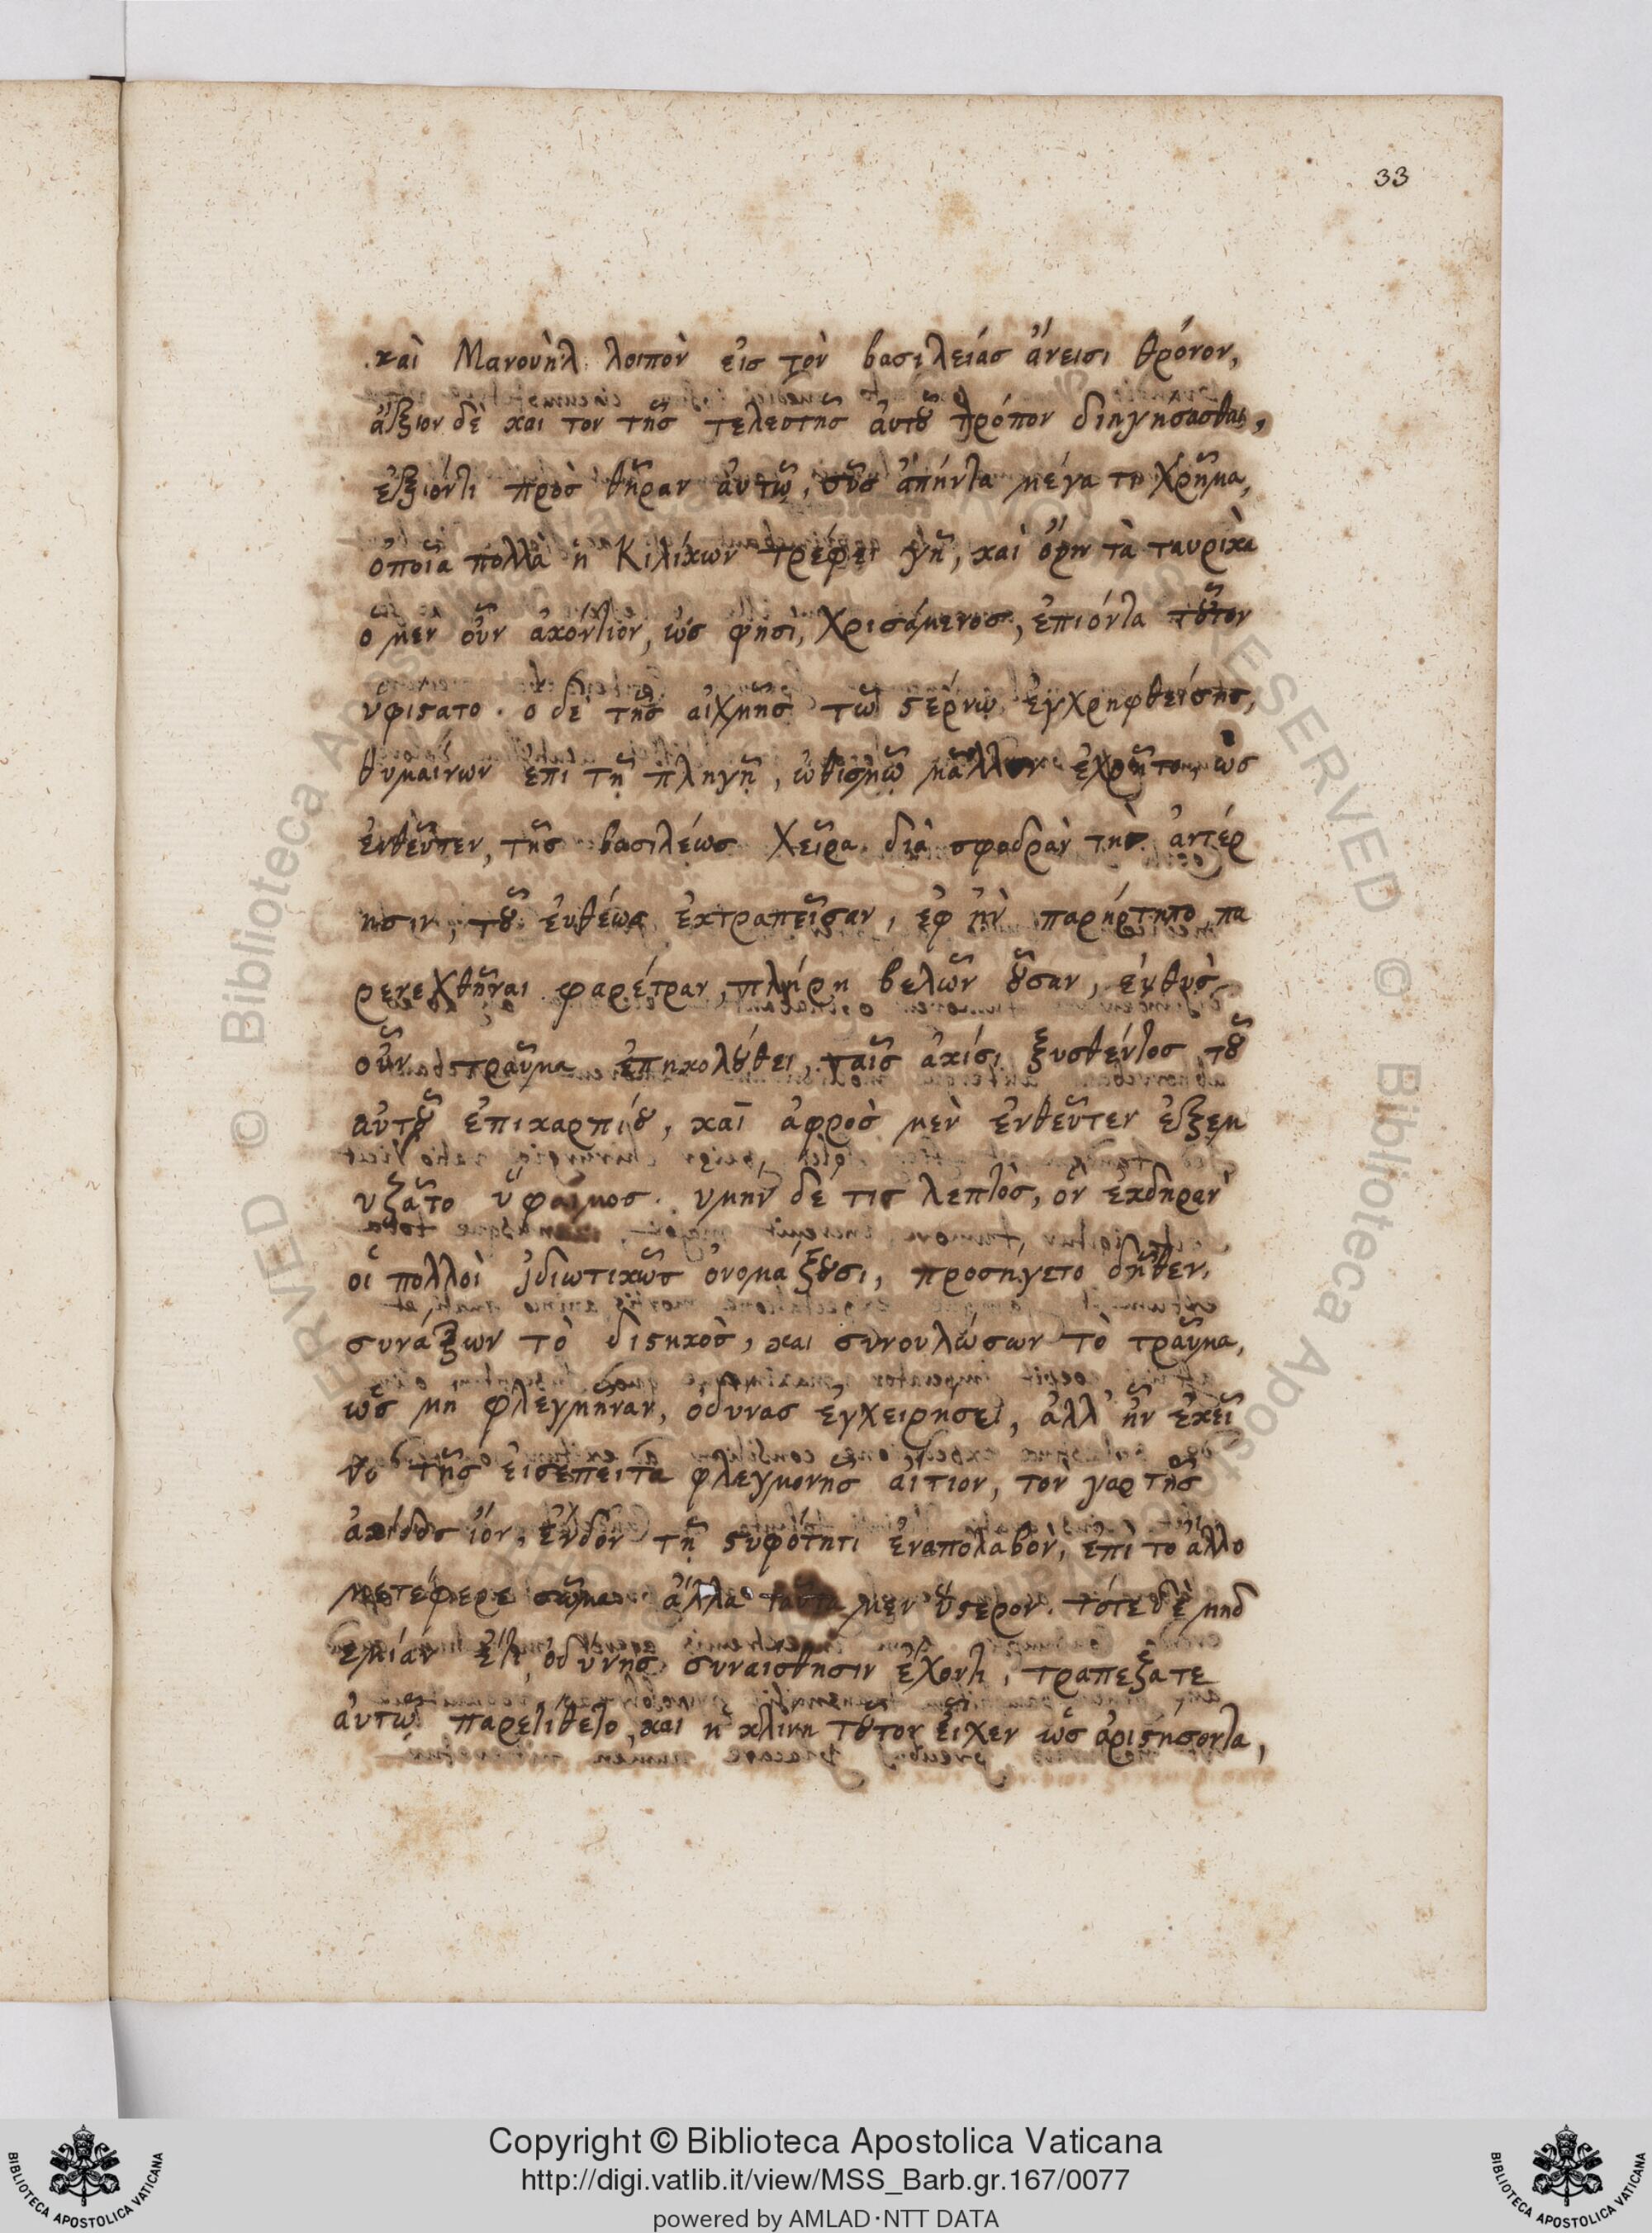 33
καὶ Μανουὴλ λοιπὸν εἰς τὸν βασιλείας ἄνεισι θρόνον,
ἄξιον δὲ και τον τῆς τελεστης ἀυτοῦ τρόπον διηγησασθαι,
ἐξιόντι πρὸς θῆραν ἀυτῷ, σῦς ἀπήντα μέγα τι χρῆμα,
ὁποῖα πολλὰ ἡ Κιλίκων τρέφει γῆ, καὶ ὄρη τὰ ταυρικὰ
ὁ μὲν οὖν ἀκόντιον, ὥς φησὶ, χρισάμενος, ἐπιόντα τοῦτον
υφιστατο. ο δὲ τῆς αἰχμῆς τῷ στέρνῳ ἐγχρηφθείσης,
θυμαινων επι τῇ πληγῇ, ὠθισμῷ μᾶλλον ἐχρῆτο, ὡς
ἐνθεῦτεν, τῆς βασιλέως χεῖρα διὰ σφοδρὰν τὴν ἀντέρ
ησιν, τοῦ ἐυθέως ἐκτραπεῖσαν, ἐφ ἣν παρήρτητο πα
ρενεχθῆναι φαρέτραν, πλήρη βελῶν οὖσαν, ἐυθὺς
οὖν τραῦμα ἐπηκολούθει, ταῖς ἀκίσι ξυσθέντος τοῦ
αὐτοῦ ἐπικαρπίου, καὶ ἀφρὸς μὲν ἐνθεῦτεν ἐξεμ
υζᾶτο ὕφαιμος. υμὴν δέ τις λεπτὸς, ὃν ἐκδηρὰν
οἱ πολλοὶ ἰδιωτικῶς ὀνομαξουσι, προσήγετο δῆθεν,
συναξων τὸ διστηκὸς, και συνουλώσων τὸ τραῦμα,
ὡς μη φλεγμῆναν, ὀδυνας ἐγχειρησει, ἀλλ' ἦν ἐκεῖ
νο τῆς εἰσέπειτα φλεγμονῆς αἴτιον, τὸν γαρ τῆς
ἀκίδος ἰὸν, ἔνδον τῇ στυφότητι ἐναπολαβὸν, ἐπὶ το ἄλλο
μετέφερε σῶμα. ἀλλα ταῦτα μὲν ὕστερον. τότε δὲ μηδ
εμίαν ἔτι ὀδύνης συναισθησιν ἔχοντι, τραπεξα τε
ἀυτῷ παρετιθετο, και ἡ κλινη τοῦτον εἶχεν ὡς ἀριστήσοντα,
Copyright © Biblioteca Apostolica Vaticana
http://digi.vatlib.it/view/MSS_Barb.gr.167/0077
powered by AMLAD·NTT DATA
BIBLIOTECA APOSTOLICA VATICANA
BIBLIOTECA APOSTOLICA VATICANA